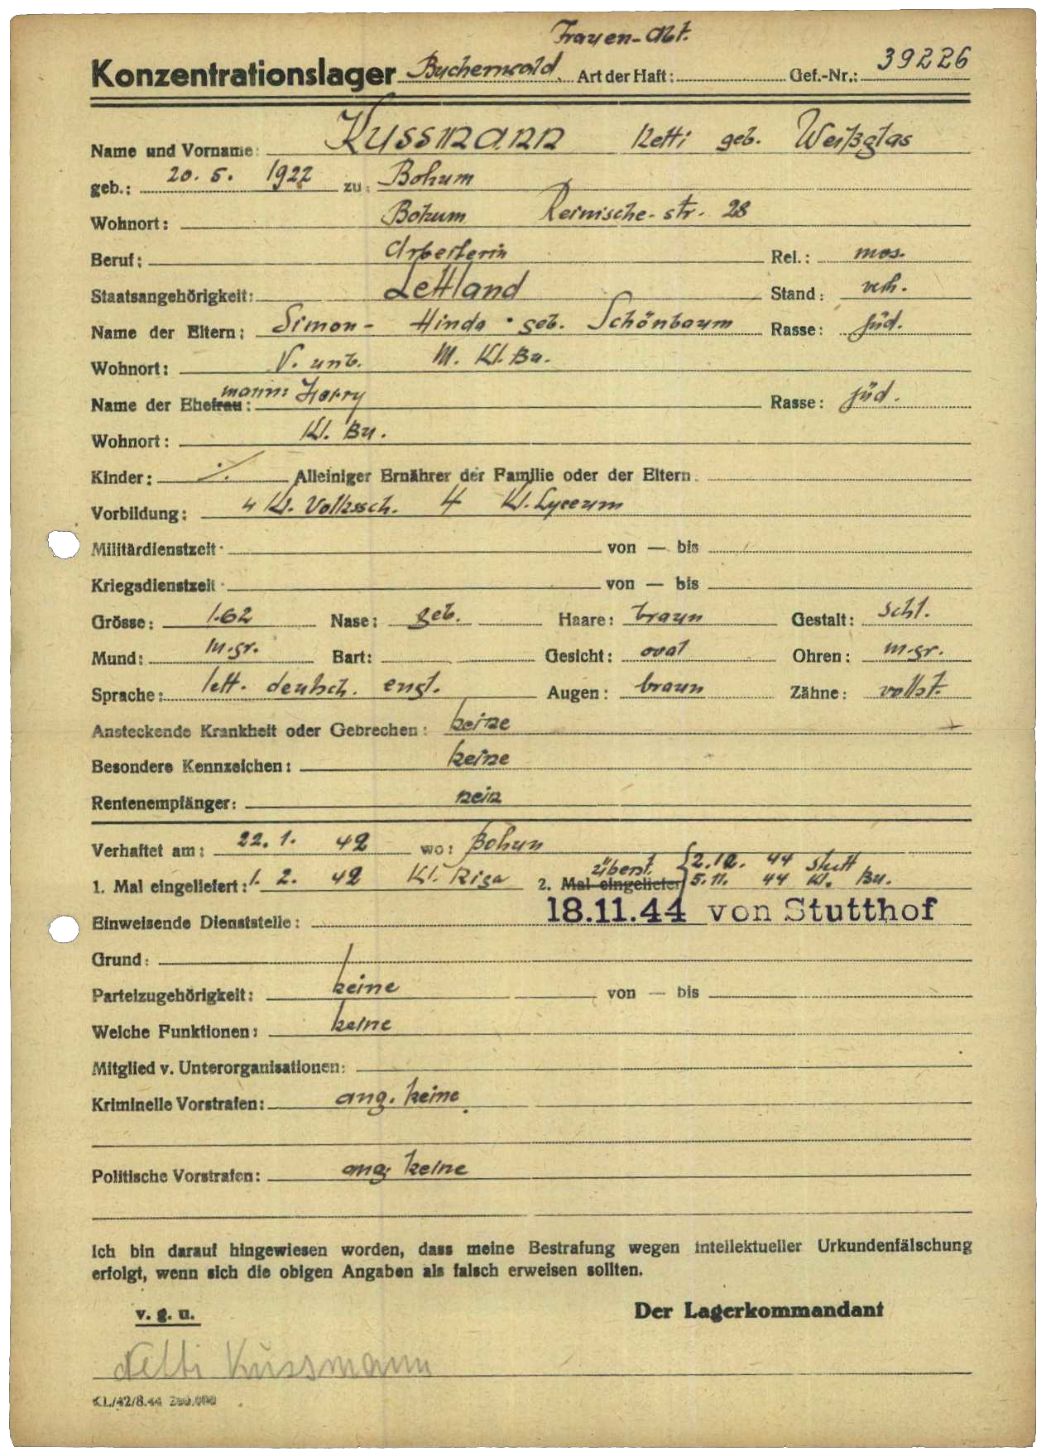 Frauen-Abt.
Konzentrationslager Buchenwald Art der Haft: Gef.-Nr.: 39226
Name und Vorname: Kussmann Netti geb. Weißglas
geb.: 20. 5. 1922 zu: Bohum
Wohnort: Bohum Reinische-str. 28
Beruf: Arbeiterin Rel.: mos.
Staatsangehörigkeit: Lettland Stand: verh.
Name der Eltern: Simon- Hinda geb. Schönbaum Rasse: jüd.
Wohnort: V. unb. M. Kl. Bu.
Name der Ehefrau: mann: Harry Rasse: jüd.
Wohnort: Kl. Bu.
Kinder: ./. Alleiniger Ernährer der Familie oder der Eltern.
Vorbildung: 4 Kl. Volkssch. 4 Kl. Lyceum
Militärdienstzeit von — bis
Kriegsdienstzeit von — bis
Grösse: 1.62 Nase: geb. Haare: braun Gestalt: schl.
Mund: m.gr. Bart: Gesicht: oval Ohren: m.gr.
Sprache: lett. deutsch. engl. Augen: braun Zähne: vollst.
Ansteckende Krankheit oder Gebrechen: keine
Besondere Kennzeichen: keine
Rentenempfänger: nein
Verhaftet am: 22. 1. 42 wo: Bohun
1. Mal eingeliefert: 1. 2. 42 Kl. Riga 2. Mal eingeliefert überst. 2.10. 44 Stutt
5. 11. 44 Kl. Bu.
Einweisende Dienststelle: 18.11.44 von Stutthof
Grund:
Parteizugehörigkeit: keine von — bis
Welche Funktionen: keine
Mitglied v. Unterorganisationen:
Kriminelle Vorstrafen: ang. keine
Politische Vorstrafen: ang. keine
Ich bin darauf hingewiesen worden, dass meine Bestrafung wegen intellektueller Urkundenfälschung
erfolgt, wenn sich die obigen Angaben als falsch erweisen sollten.
v. g. u. Der Lagerkommandant
Netti Kussmann
KL/42/8.44 200.000